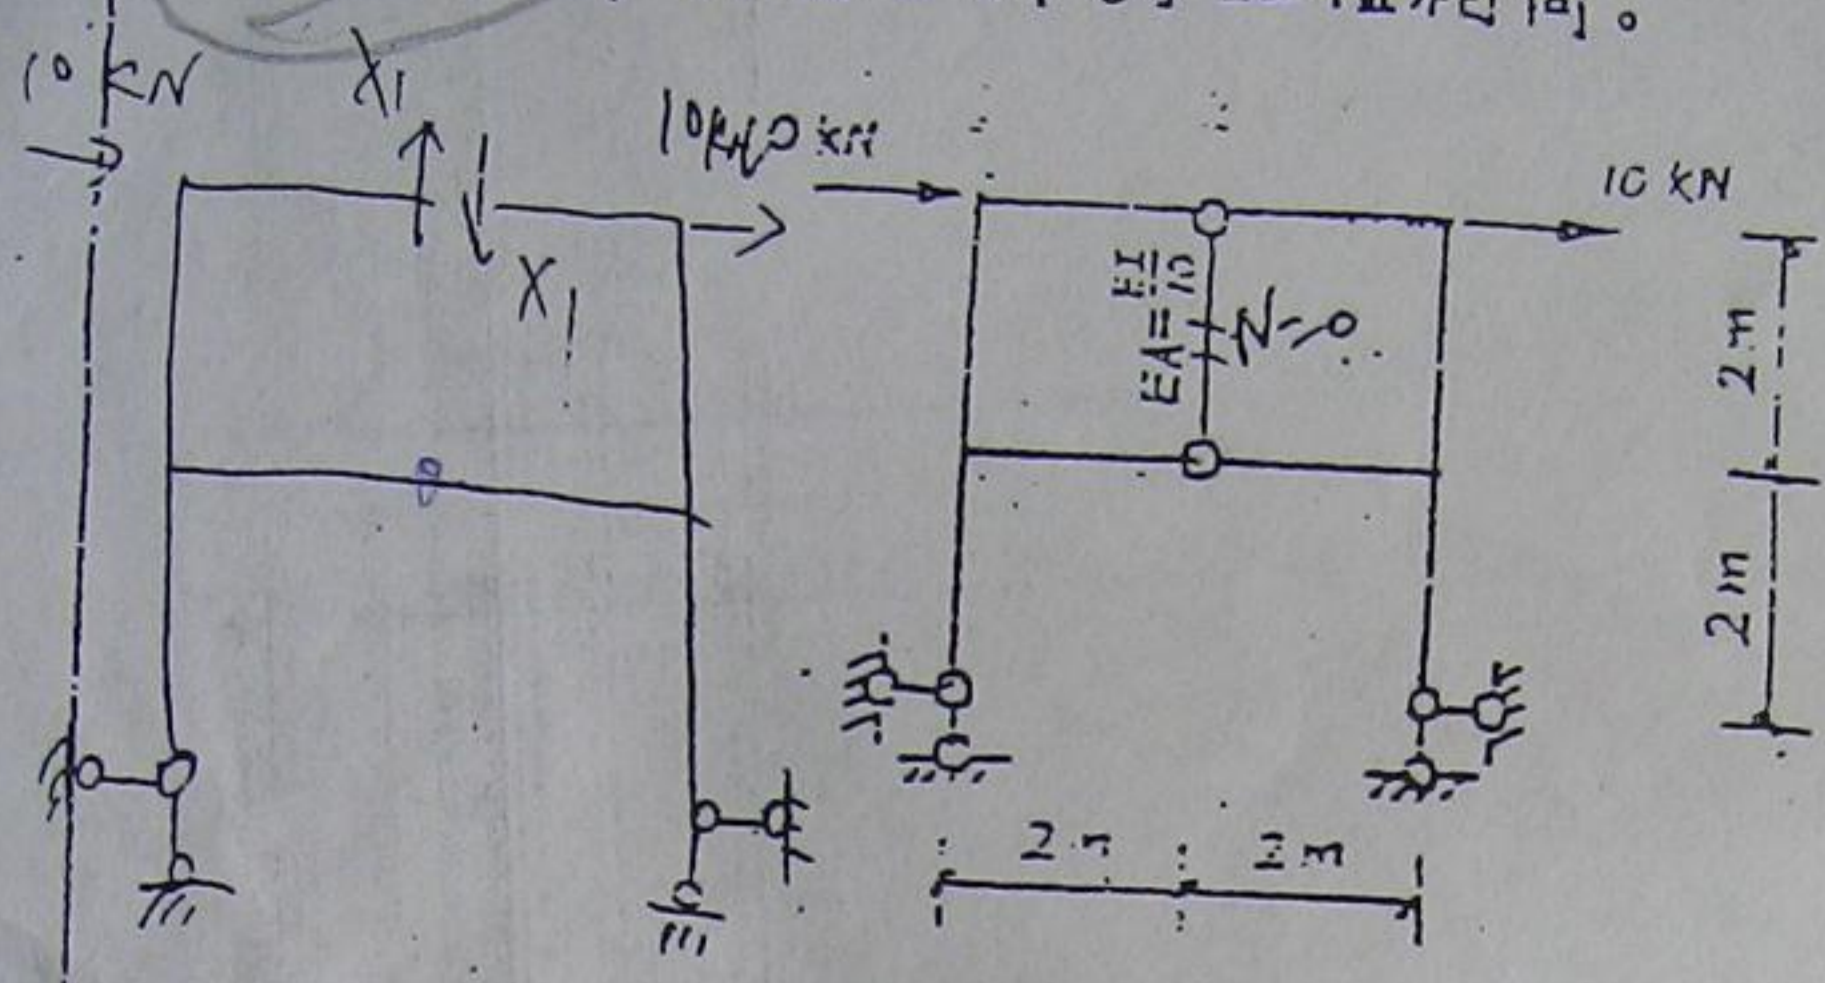 10 KN
X₁
X₁
10 KN
10 KN
EA = EI/10
N=0
2m
2m
2m
2m